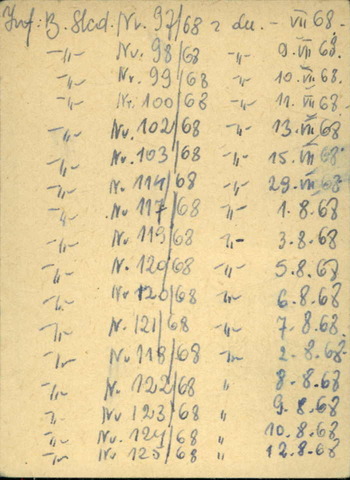 Inf: B. Śled. Nr. 97/68 z dn. - VII 68.
-„- Nr. 98/68 -„- 9.VII.68.
-„- Nr. 99/68 -„- 10.VII.68.
-„- Nr. 100/68 -„- 11.VII.68
-„- Nr. 102/68 -„- 13.VII.68
-„- Nr. 103/68 -„- 15.VII.68
-„- Nr. 114/68 -„- 29.VII.68
-„- Nr. 117/68 -„- 1.8.68
-„- Nr. 119/68 -„- 3.8.68
-„- Nr. 120/68 -„- 5.8.68
-„- Nr. 120/68 -„- 6.8.68
-„- Nr. 121/68 -„- 7.8.68.
-„- Nr. 118/68 -„- 2.8.68.
-„- Nr. 122/68 „ 8.8.68
-„- Nr. 123/68 „ 9.8.68
-„- Nr. 124/68 „ 10.8.68
-„- Nr. 125/68 „ 12.8.68